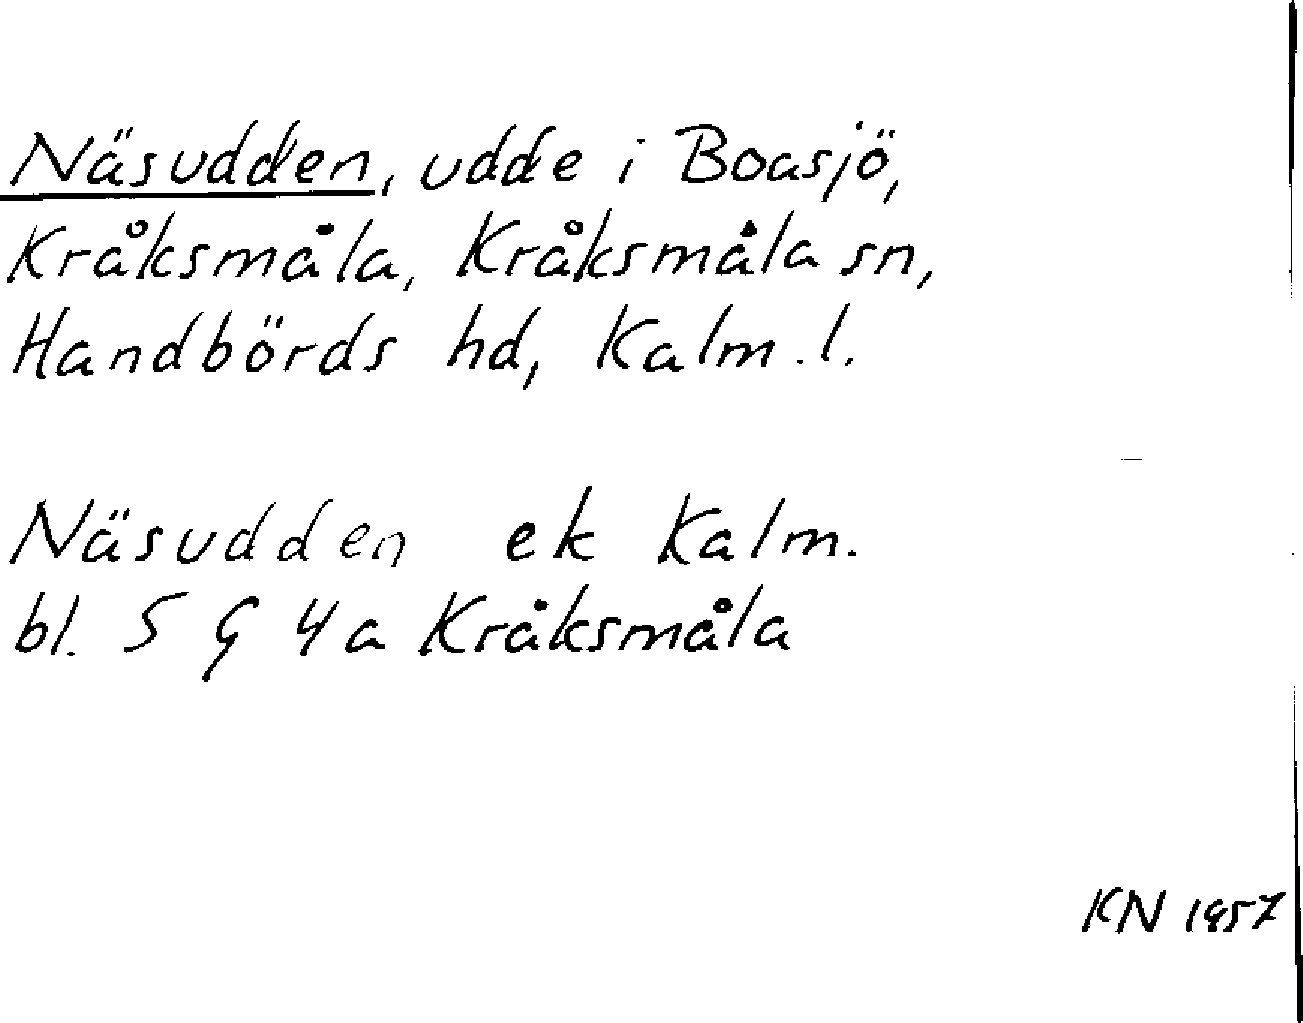 Näsudden, udde i Boasjö,
Kråksmåla, Kråksmåla sn,
Handbörds hd, Kalm. l.
Näsudden ek Kalm.
bl. 5 G 4a Kråksmåla
KN 1957